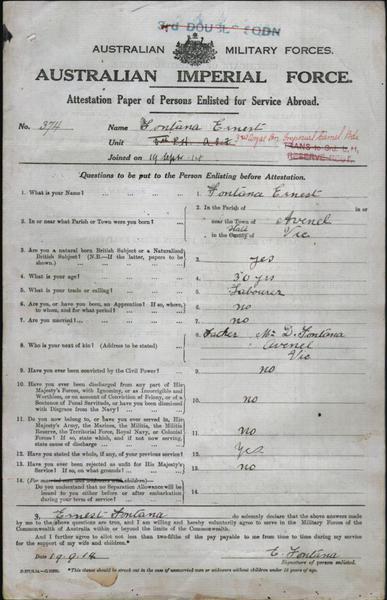 AUSTRALIAN MILITARY FORCES.
AUSTRALIAN IMPERIAL FORCE.
Attestation Paper of Persons Enlisted for Service Abroad.
No. 374 Name Fontana Ernest
Unit
TRANS to 3rd L.H.
Joined on 19 Sept 14
Questions to be put to the Person Enlisting before Attestation.
1. What is your Name? 1. Fontana Ernest
2. In or near what Parish or Town were you born? 2. In the Parish of in or
near the Town of Avenel
in the County of State Vic
3. Are you a natural born British Subject or a Naturalised
British Subject? (N.B.—If the latter, papers to be
shown.) 3. yes
4. What is your age? 4. 30 yrs
5. What is your trade or calling? 5. Labourer
6. Are you, or have you been, an Apprentice? If so, where,
to whom, and for what period? 6. no
7. Are you married? 7. no
8. Who is your next of kin? (Address to be stated) 8. Father Mr D. Fontana
Avenel
Vic
9. Have you ever been convicted by the Civil Power? 9. no
10. Have you ever been discharged from any part of His
Majesty's Forces, with Ignominy, or as Incorrigible and
Worthless, or on account of Conviction of Felony, or of a
Sentence of Penal Servitude, or have you been dismissed
with Disgrace from the Navy? 10. no
11. Do you now belong to, or have you ever served in, His
Majesty's Army, the Marines, the Militia, the Militia
Reserve, the Territorial Force, Royal Navy, or Colonial
Forces? If so, state which, and if not now serving,
state cause of discharge 11. No
12. Have you stated the whole, if any, of your previous service? 12. Yes
13. Have you ever been rejected as unfit for His Majesty's
Service? If so, on what grounds? 13. no
14. (For married men and widowers with children)—
Do you understand that no Separation Allowance will be
issued to you either before or after embarkation
during your term of service? 14.
I, Ernest Fontana do solemnly declare that the above answers
made by me to the above questions are true, and I am willing and hereby voluntarily agree to serve in the Military Forces of the
Commonwealth of Australia within or beyond the limits of the Commonwealth.
And I further agree to allot not less than two-fifths of the pay payable to me from time to time during my service
for the support of my wife and children.*
Date 19.9.14 E. Fontana
Signature of person enlisted.
*This clause should be struck out in the case of unmarried men or widowers without children under 18 years of age.